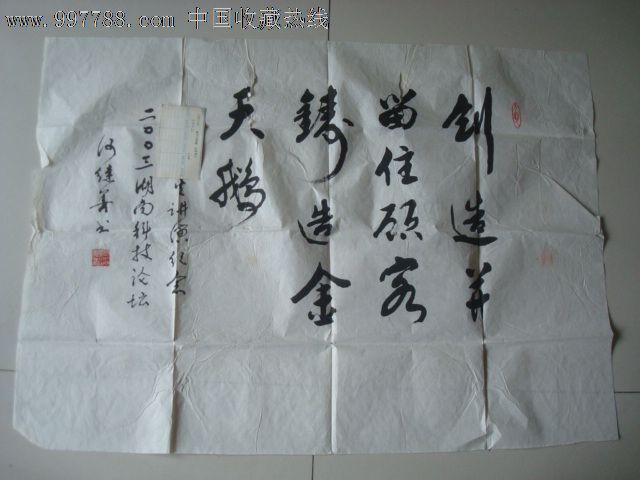 www.997788.com 中国收藏热线
创造并
留住顾客
铸造金
天鹅
生讲演纪念
二〇〇三湖南科技论坛
何继善书